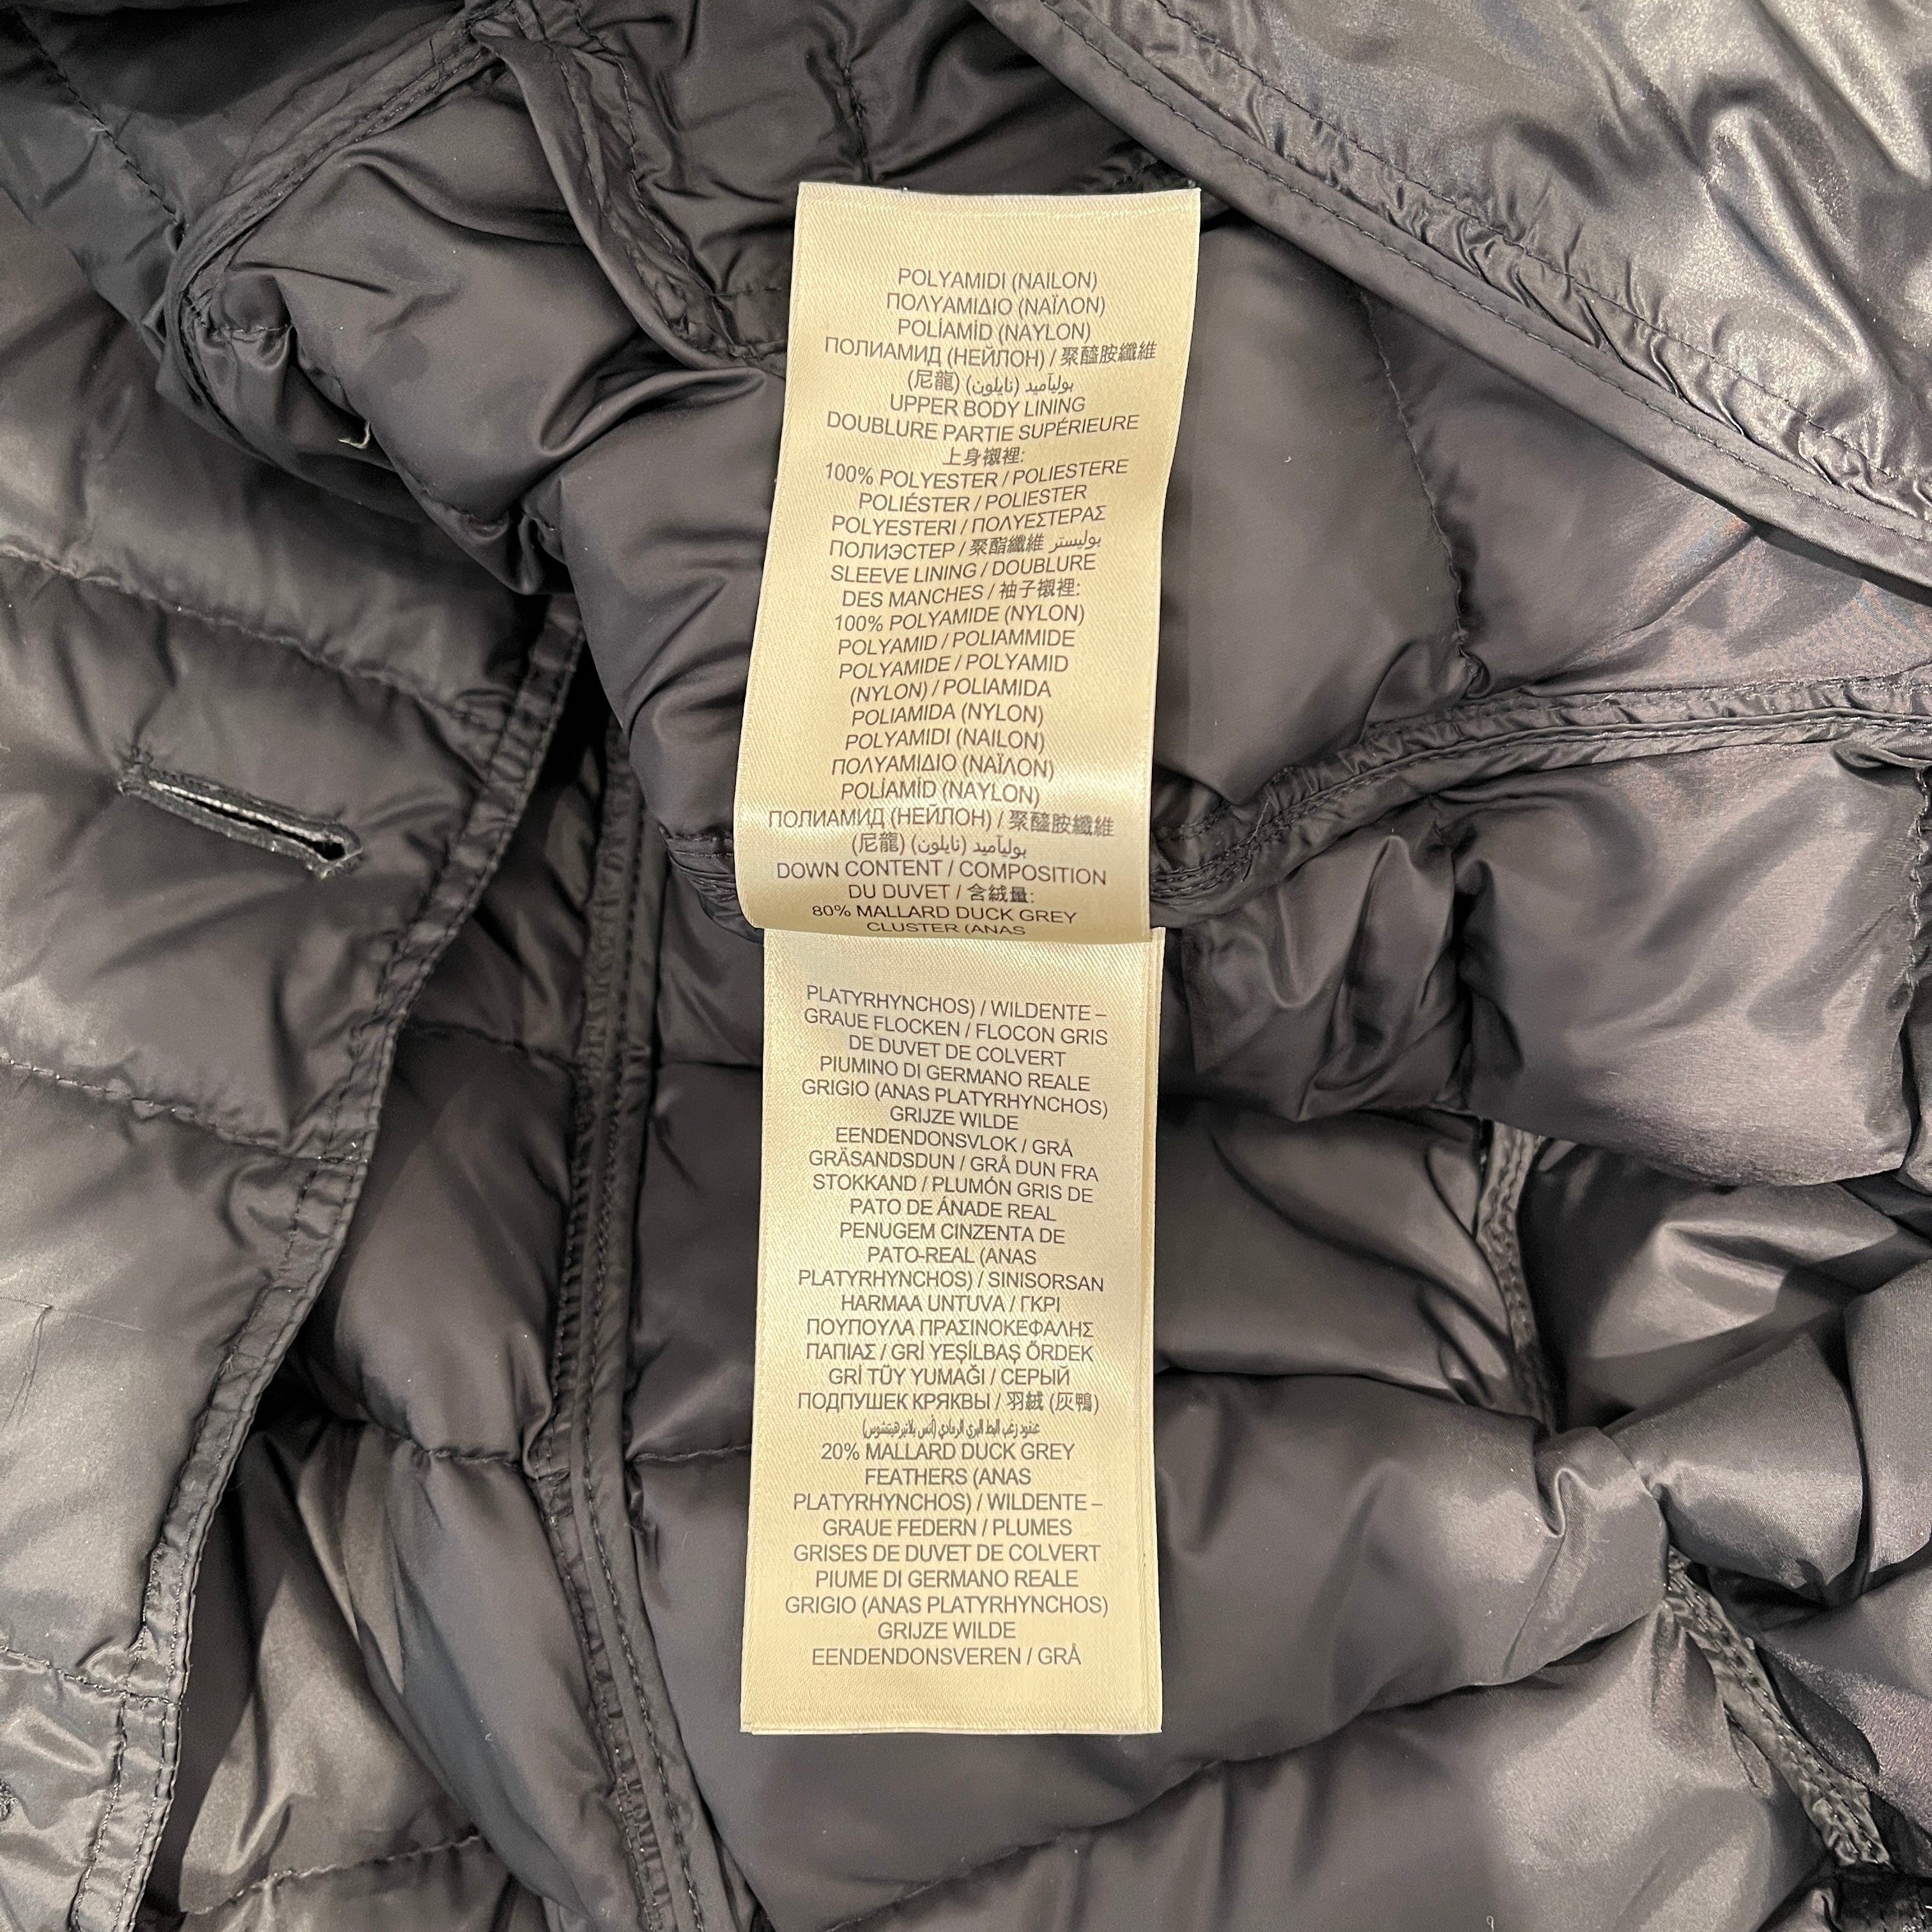 POLYAMIDI (NAILON)
ΠΟΛΥΑΜΙΔΙΟ (ΝΑΪΛΟΝ)
POLİAMİD (NAYLON)
ПОЛИАМИД (НЕЙЛОН) / 聚醯胺纖維
(尼龍) بولیآمید (نایلون)
UPPER BODY LINING
DOUBLURE PARTIE SUPÉRIEURE
上身襯裡:
100% POLYESTER / POLIESTERE
POLIÉSTER / POLIESTER
POLYESTERI / ΠΟΛΥΕΣΤΕΡΑΣ
ПОЛИЭСТЕР / 聚酯纖維 بوليستر
SLEEVE LINING / DOUBLURE
DES MANCHES / 袖子襯裡:
100% POLYAMIDE (NYLON)
POLYAMID / POLIAMMIDE
POLYAMIDE / POLYAMID
(NYLON) / POLIAMIDA
POLIAMIDA (NYLON)
POLYAMIDI (NAILON)
ΠΟΛΥΑΜΙΔΙΟ (ΝΑΪΛΟΝ)
POLİAMİD (NAYLON)
ПОЛИАМИД (НЕЙЛОН) / 聚醯胺纖維
(尼龍) بولیآمید (نایلون)
DOWN CONTENT / COMPOSITION
DU DUVET / 含絨量:
80% MALLARD DUCK GREY
CLUSTER (ANAS
PLATYRHYNCHOS) / WILDENTE –
GRAUE FLOCKEN / FLOCON GRIS
DE DUVET DE COLVERT
PIUMINO DI GERMANO REALE
GRIGIO (ANAS PLATYRHYNCHOS)
GRIJZE WILDE
EENDENDONSVLOK / GRÅ
GRÄSANDSDUN / GRÅ DUN FRA
STOKKAND / PLUMÓN GRIS DE
PATO DE ÁNADE REAL
PENUGEM CINZENTA DE
PATO-REAL (ANAS
PLATYRHYNCHOS) / SINISORSAN
HARMAA UNTUVA / ΓΚΡΙ
ΠΟΥΠΟΥΛΑ ΠΡΑΣΙΝΟΚΕΦΑΛΗΣ
ΠΑΠΙΑΣ / GRİ YEŞİLBAŞ ÖRDEK
GRİ TÜY YUMAĞI / СЕРЫЙ
ПОДПУШЕК КРЯКВЫ / 羽絨 (灰鴨)
عنقود زغب البط البري الرمادي (أنس بلاتيرهينشوس)
20% MALLARD DUCK GREY
FEATHERS (ANAS
PLATYRHYNCHOS) / WILDENTE –
GRAUE FEDERN / PLUMES
GRISES DE DUVET DE COLVERT
PIUME DI GERMANO REALE
GRIGIO (ANAS PLATYRHYNCHOS)
GRIJZE WILDE
EENDENDONSVEREN / GRÅ